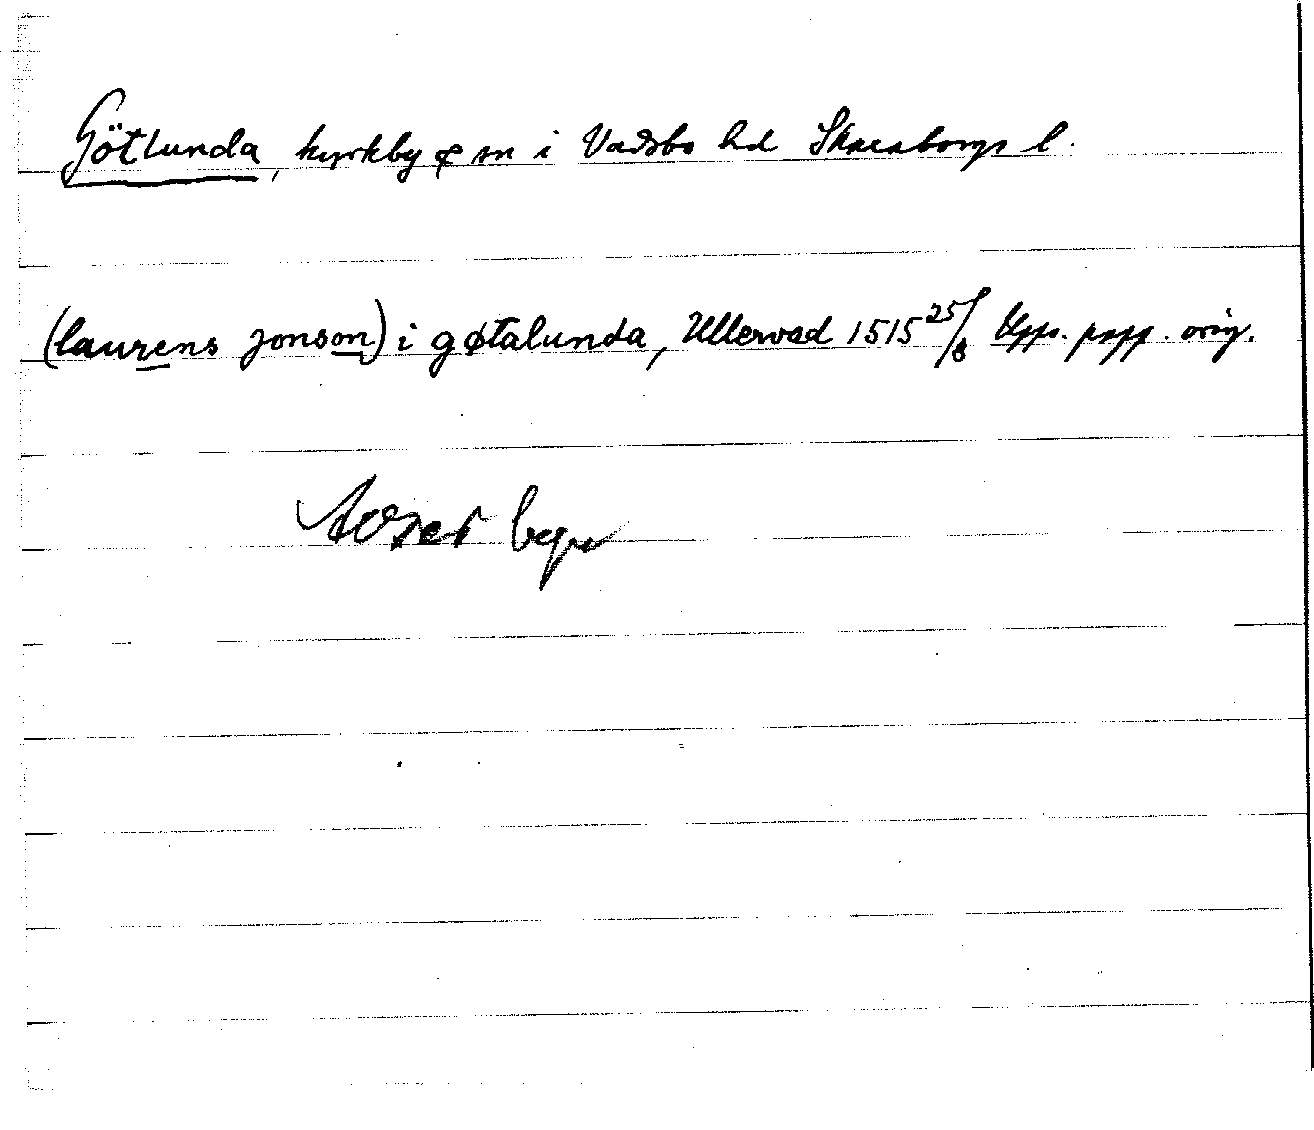 Götlunda, kyrkby & sn i Vadsbo hd Skaraborgs l.
(laurens jonson) i gøtalunda, Ullervad 1515 25/8 Upps. papp. orig.